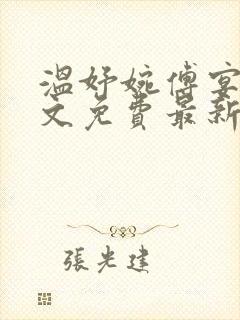 温妤婉傅宴
文免费最新
張光建